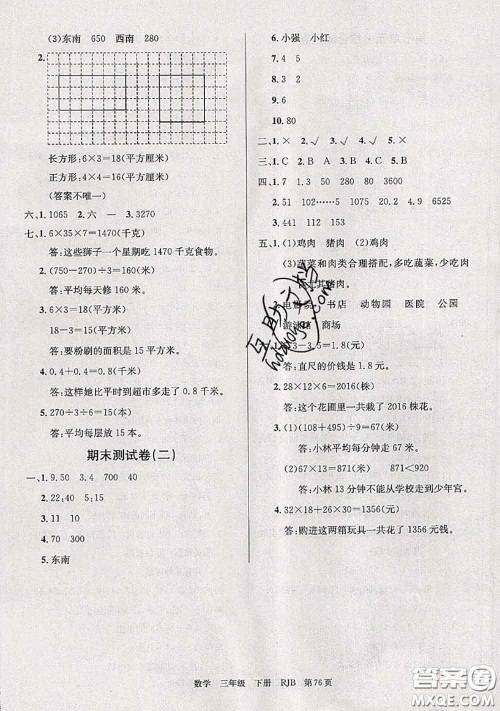 (3)东南 650 西南 280
2.
长方形:6×3=18(平方厘米)
正方形:4×4=16(平方厘米)
(答案不唯一)
六、1.1065 2.六 一 3.3270
七、1.6×35×7=1470(千克)
答:这些狮子一个星期吃 1470 千克食物。
2.(750-270)÷3=160(米)
答:平均每天修 160 米。
3.6×3=18(平方米)
18-3=15(平方米)
答:要粉刷的面积是 15 平方米。
4.0.4+0.4=0.8(千米)
答:这样她比平时到超市多走了 0.8 千米。
5.270÷3÷6=15(本)
答:平均每层放 15 本。
期末测试卷(二)
一、1.9.50 3.4 700 40
2.22;40 5;15
3.11 10
4.70 300
5.东南
6.小强 小红
7.4 8
8.5 2
9.6
10.80
二、1.× 2.√ 3.√ 4.× 5.√
三、1.C 2.B 3.A 4.B 5.C
四、1.7 1.3 50 280 80 3600
2.51 102……5 1075 20.2 4.9 6525
3.441 112 153
五、1.(1)鸡肉 猪肉 (2)鸡肉
(3)蔬菜和肉类合理搭配,多吃蔬菜,少吃肉
其猪肉。
书店 动物园 医院 公园
商场
3-3.5=1.8(元)
答:直尺的价钱是 1.8 元。
2.28×12×6=2016(株)
答:这个花圃里一共栽了 2016 株花。
3.(1)(108+495)÷9=67(米)
答:小林平均每分钟走 67 米。
(2)67×13=871(米) 871<920
答:小林 13 分钟不能从学校走到少年宫。
4.32×18+26×30=1356(元)
答:购进这两箱玩具一共花了 1356 元钱。
数学 三年级 下册 RJB 第76页
答案圈
MXQE.COM